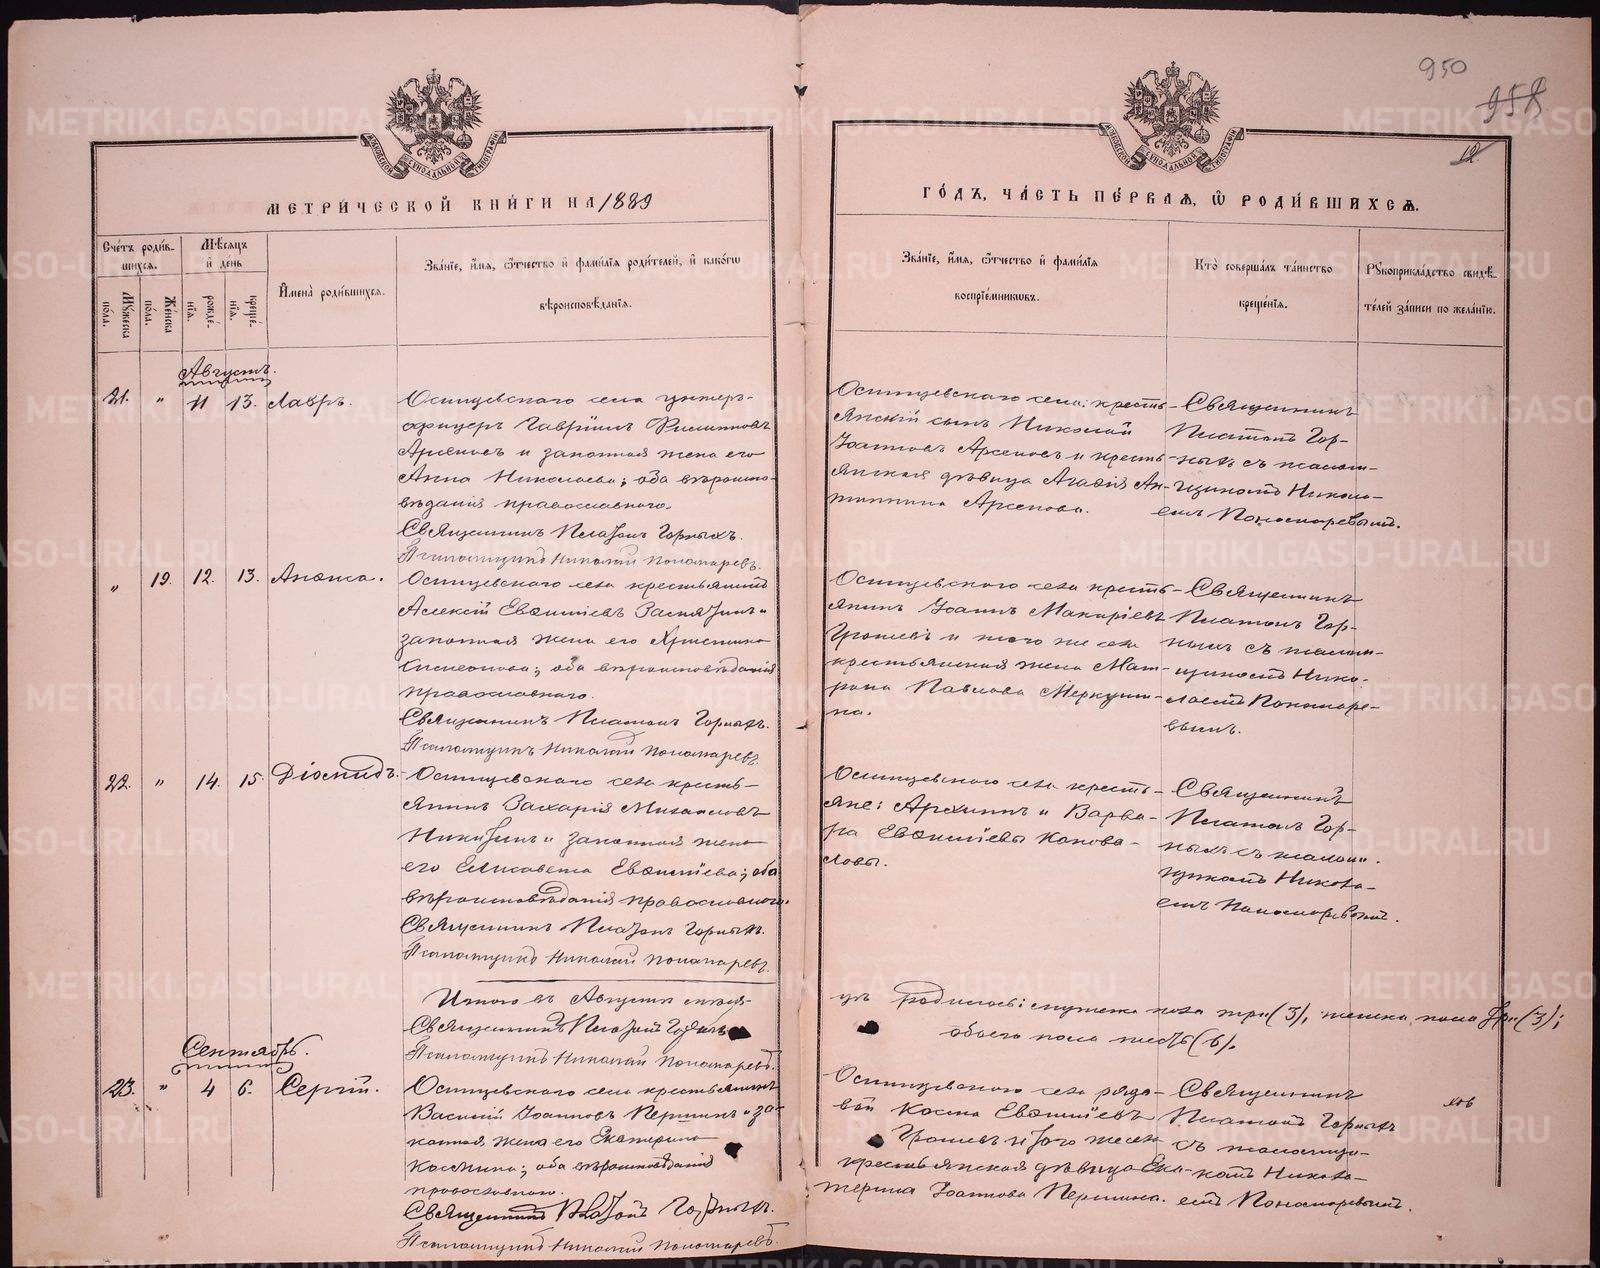 950
958
12
МОСКОВСКОЙ СѴНОДАЛЬНОЙ ТИПОГРАФІИ
МОСКОВСКОЙ СѴНОДАЛЬНОЙ ТИПОГРАФІИ
МЕТРИ́ЧЕСКОЙ КНИ́ГИ НА 1889
ГО́ДЪ, ЧА́СТЬ ПЕ́РВАѦ, Ѡ РОДИ́ВШИХСѦ.
Сче́тъ роди́в-
шихсѧ.
Мѣ́сѧцъ
и́ де́нь
Мꙋжеска по́ла.
Же́нска по́ла.
рожде́нїѧ.
креще́нїѧ.
И҆мена̀ роди́вшихсѧ.
Зва́нїе, и҆́мѧ, ѻ҆́тчество и҆ фами́лїѧ роди́телей, и҆ како́гѡ
вѣроисповѣ́данїѧ.
Зва́нїе, и҆́мѧ, ѻ҆́тчество и҆ фами́лїѧ
воспрїе́мникѡвъ.
Кто̀ соверша́лъ та́инство
креще́нїѧ.
Рꙋкоприкла́дство свидѣ́-
телей за́писи по жела́нїю.
Августъ.
21. " 11 13. Лавръ.
Осинцевскаго села унтеръ-
офицеръ Гавріилъ Филипповъ
Арсеновъ и законная жена его
Анна Николаева; оба вѣроиспо-
вѣданія православнаго.
Священникъ Платонъ Горныхъ.
Псаломщикъ Николай Пономаревъ.
Осинцевскаго села: кресть-
янскій сынъ Николай
Іоанновъ Арсеновъ и кресть-
янская дѣвица Агафія
Арсенова.
Священникъ
Платонъ Гор-
ныхъ съ псалом-
щикомъ Никола-
емъ Пономаревымъ.
" 19. 12. 13. Анфиса.
Осинцевскаго села крестьянинъ
Алексій Евфиміевъ и
законная жена его Христина
Симеонова; оба вѣроисповѣданія
православнаго.
Священникъ Платонъ Горныхъ.
Псаломщикъ Николай Пономаревъ.
Осинцевскаго села кресть-
янинъ Іоаннъ Макаріевъ
Грошевъ и того же села
крестьянская жена Мат-
рона Павлова Меркуши-
на.
Священникъ
Платонъ Гор-
ныхъ съ псалом-
щикомъ Нико-
лаемъ Пономаре-
вымъ.
22. " 14. 15. Діомидъ.
Осинцевскаго села кресть-
янинъ Захарій Михаиловъ
Никитинъ и законная жена
его Елисавета Евфиміева; оба
вѣроисповѣданія православнаго.
Священникъ Платонъ Горныхъ.
Псаломщикъ Николай Пономаревъ.
Осинцевскаго села кресть-
яне: Архиппъ и Варва-
ра Евфиміевы Конова-
ловы.
Священникъ
Платонъ Гор-
ныхъ съ псалом-
щикомъ Никола-
емъ Пономаревымъ.
Итого въ Августѣ мѣся-
цѣ родилось: мужеска пола три (3), женска пола три (3);
обоего пола шесть (6).
Священникъ Платонъ Горныхъ
Псаломщикъ Николай Пономаревъ.
Сентябрь.
23. " 4 6. Сергій.
Осинцевскаго села крестьянинъ
Василій Іоанновъ Першинъ и за-
конная жена его Екатерина
Космина; оба вѣроисповѣданія
православнаго.
Священникъ Платонъ Горныхъ.
Псаломщикъ Николай Пономаревъ.
Осинцевскаго села рядо-
вой Косма Евфиміевъ
Грошевъ и того же села
крестьянская дѣвица Ека-
терина Іоаннова Першина.
Священникъ
Платонъ Горныхъ
съ псаломщи-
комъ Никола-
емъ Пономаревымъ.
METRIKI.GASO-URAL.RU